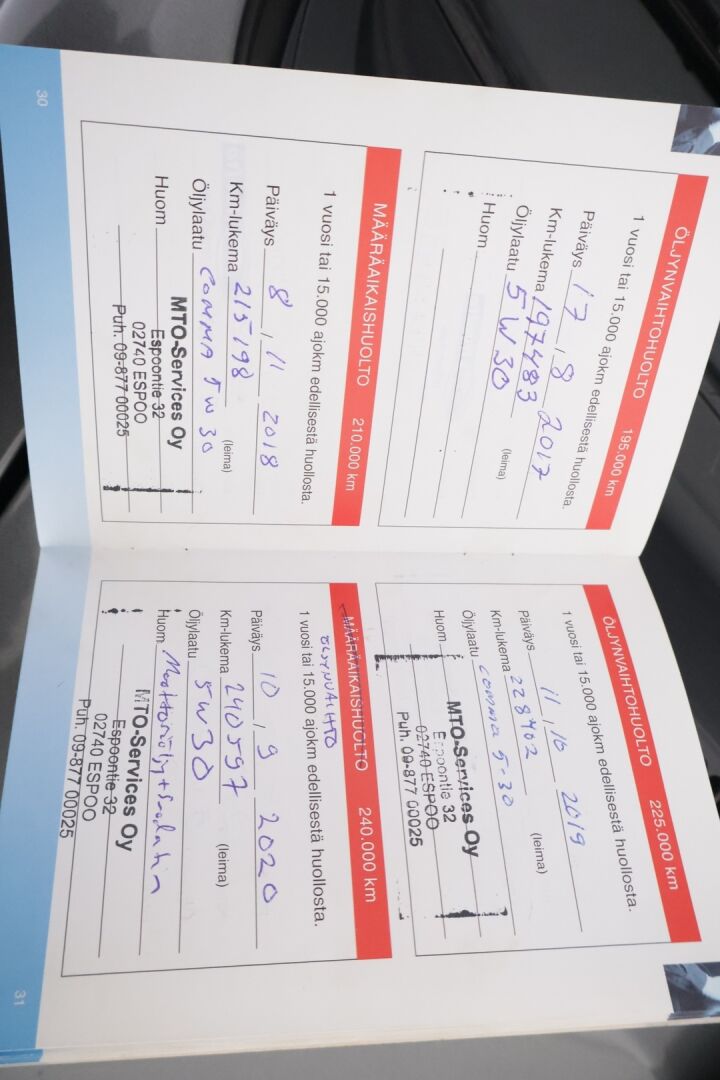 ÖLJYNVAIHTOHUOLTO 195.000 km
1 vuosi tai 15.000 ajokm edellisestä huollosta.
Päiväys 17 , 8 2017
Km-lukema 197483
Öljylaatu 5W30 (leima)
Huom
MÄÄRÄAIKAISHUOLTO 210.000 km
1 vuosi tai 15.000 ajokm edellisestä huollosta.
Päiväys 8 , 11 2018
Km-lukema 215198 (leima)
Öljylaatu COMMA 5W30
Huom
MTO-Services Oy
Espoontie 32
02740 ESPOO
Puh. 09-877 00025
30
ÖLJYNVAIHTOHUOLTO 225.000 km
1 vuosi tai 15.000 ajokm edellisestä huollosta.
Päiväys 11 , 10 2019
Km-lukema 228402 (leima)
Öljylaatu comma 5-30
Huom
MTO-Services Oy
Espoontie 32
02740 ESPOO
Puh. 09-877 00025
MÄÄRÄAIKAISHUOLTO 240.000 km
ÖLJYNVAIHTO
1 vuosi tai 15.000 ajokm edellisestä huollosta.
Päiväys 10 , 9 2020
Km-lukema 240597 (leima)
Öljylaatu 5W30
Huom Moottoriöljy+Suodatin
MTO-Services Oy
Espoontie 32
02740 ESPOO
Puh. 09-877 00025
31